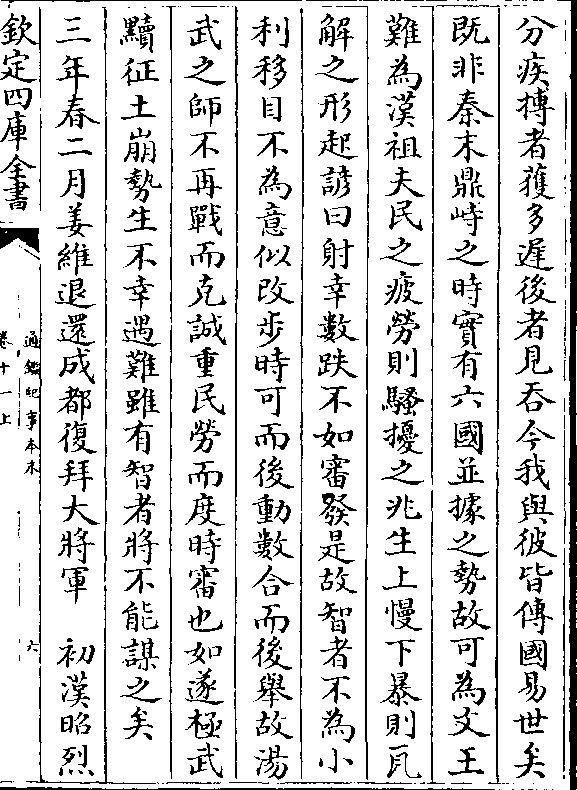 分疾搏者獲多遲後者見吞今我與彼皆傳國易世矣
既非秦末鼎峙之時實有六國並據之勢故可為文王
難為漢祖夫民之疲勞則騷擾之兆生上慢下暴則瓦
解之形起諺曰射幸數跌不如審發是故智者不為小
利移目不為意似改步時可而後動數合而後舉故湯
武之師不再戰而克誠重民勞而度時審也如遂極武
黷征土崩勢生不幸遇難雖有智者將不能謀之矣
三年春二月姜維退還成都復拜大將軍 初漢昭烈
欽定四庫全書
通鑑紀事本末
卷十一上
六